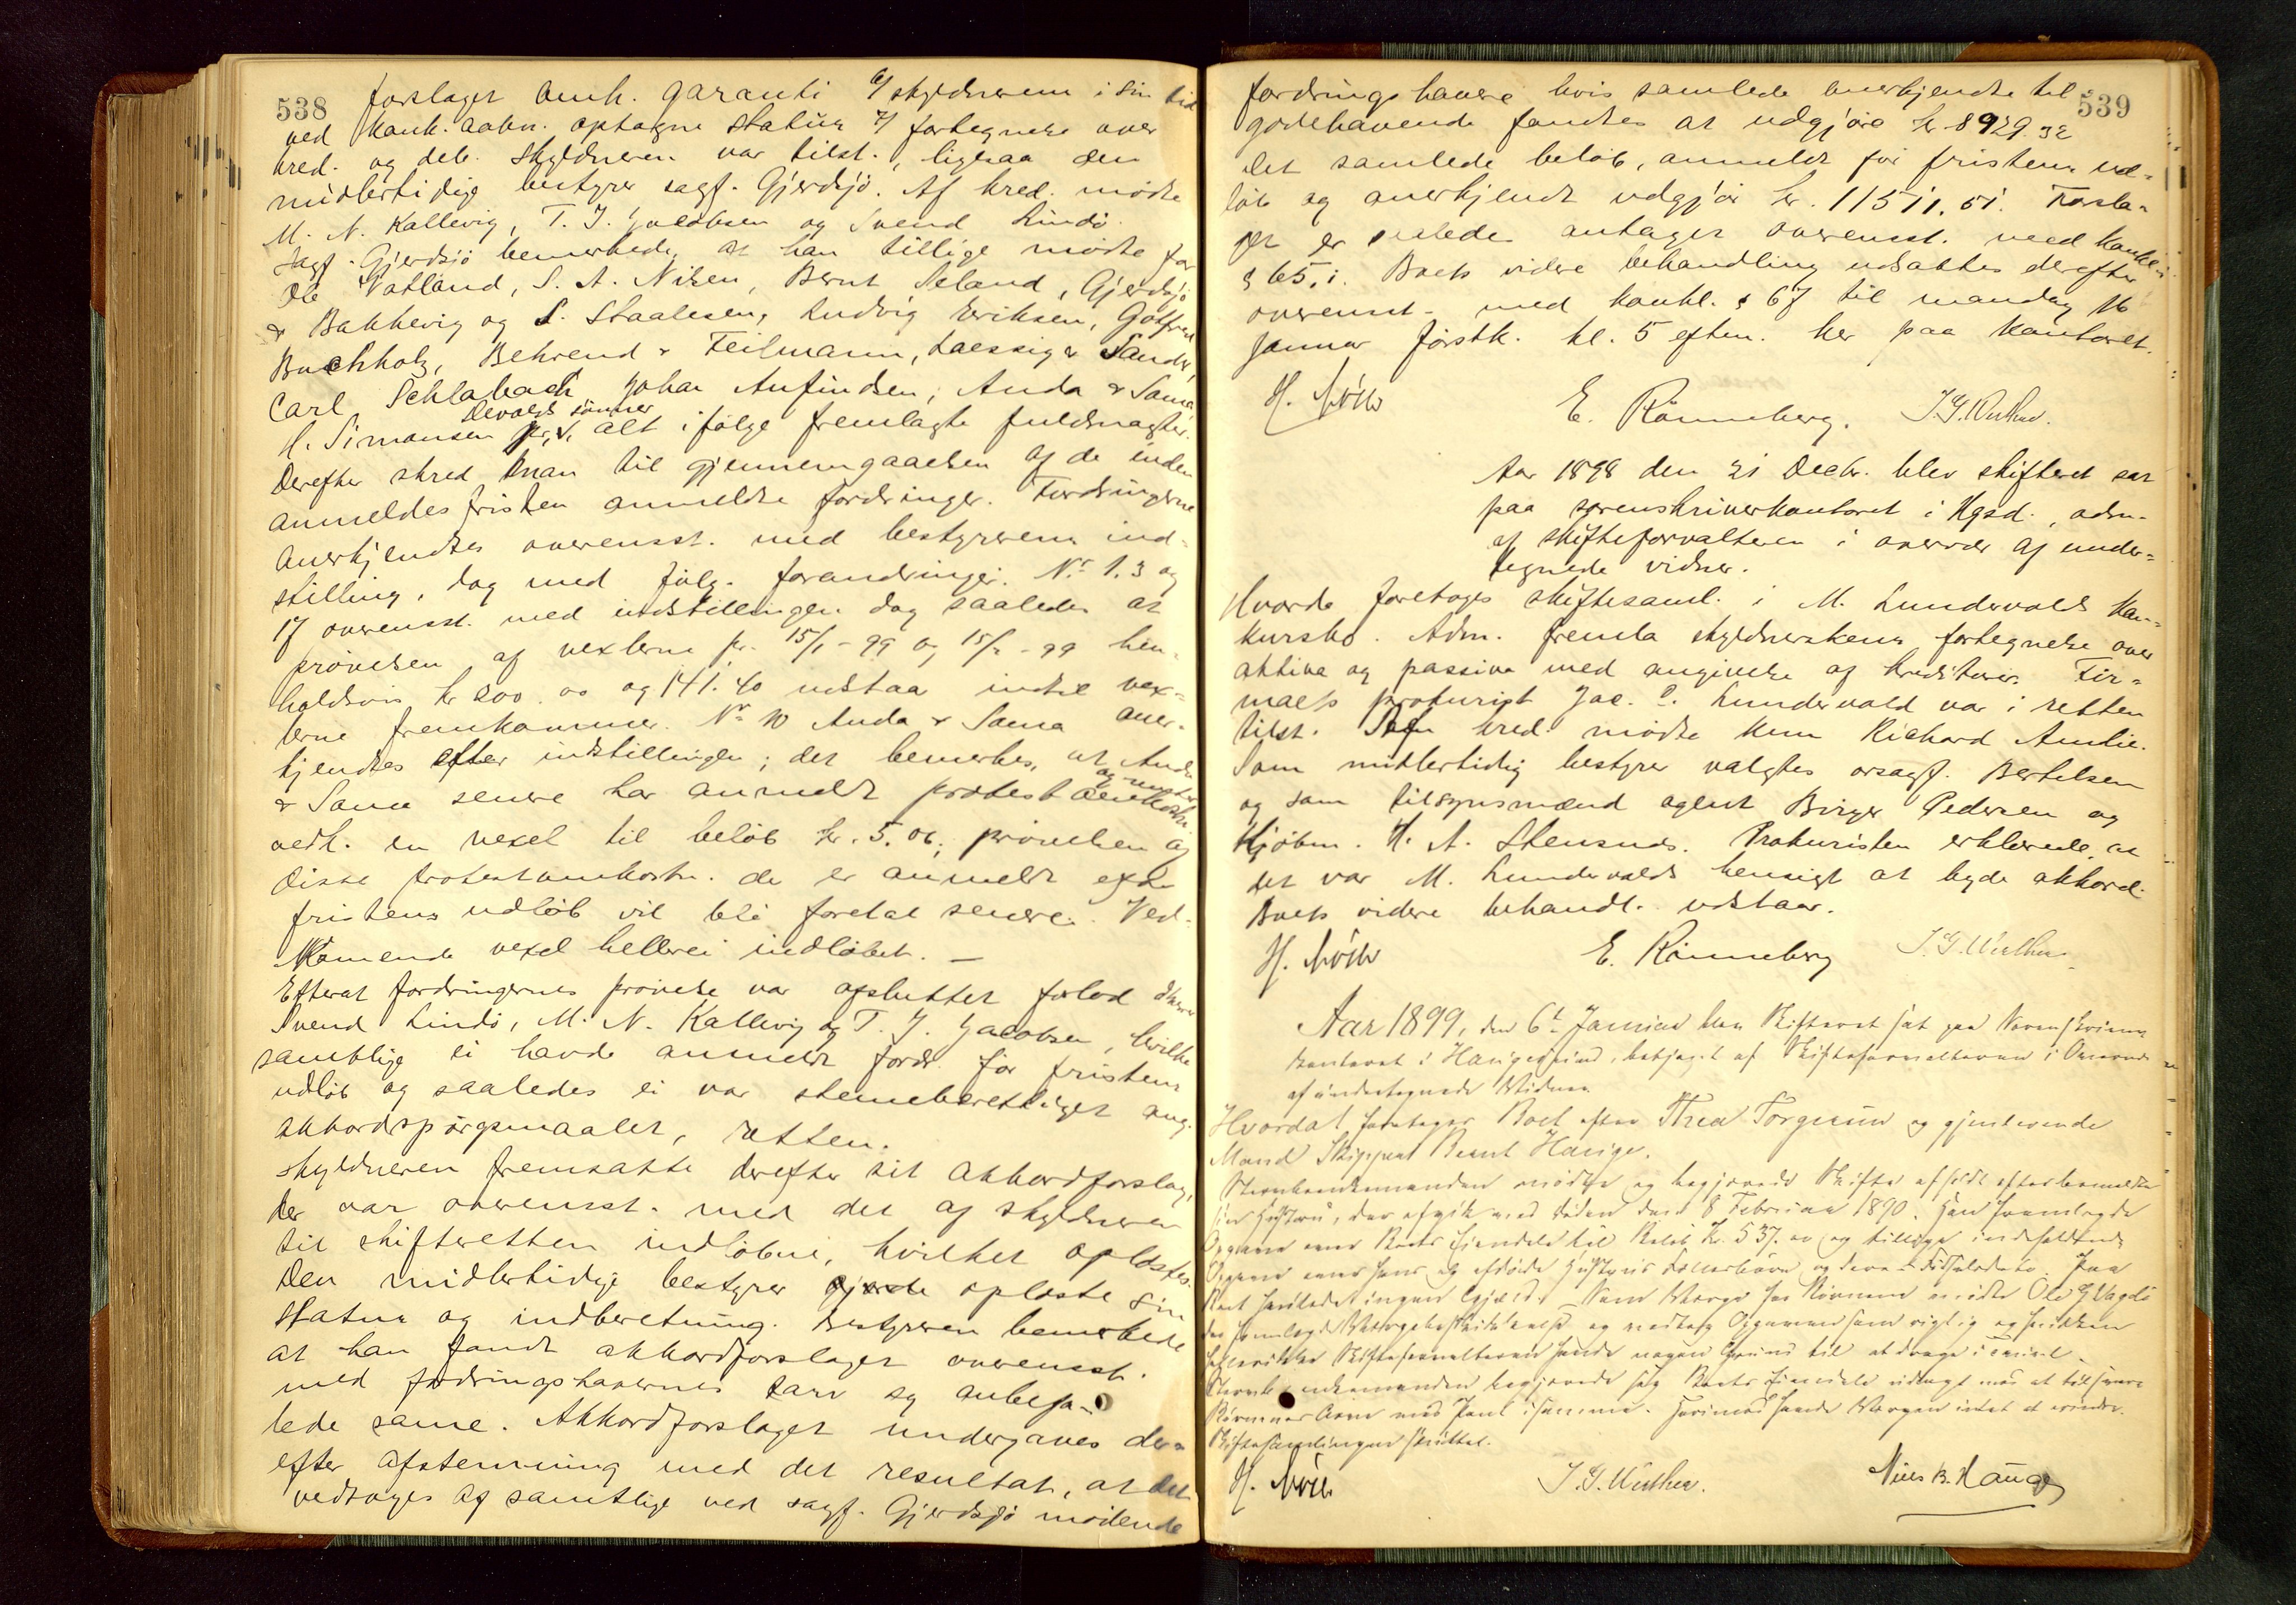 538
forslaget anh. garanti 6) skyldnerens i sin tid
ved konk. aabn. optagne status 7) fortegnelse over
kred. og deb. Skyldneren var tilst., ligesaa den
midlertidige bestyrer sagf. Gjerdsjö. Af kred. mødte
M. N. Kallevig, T. J. Jacobsen og Svend Lindö.
Sagf. Gjerdsjö bemerkede, at han tillige mødte for
Ole Vatland, S. A. Nilsen, Bernt Seland, Gjerdsjö
& Bakkevig og S. Staalesen, Ludvig Eriksen, Gotfred
Buchholz, Behrend & Feilmann, Laessig & Sander,
Carl Schlabach, Johan Anfindsen, Anda & Soma,
H. Simonsen, Devolds sønner, alt ifølge fremlagte fuldmagter.
Derefter skred man til gjennemgaaelsen af de inden
anmeldesfristen anmeldte fordringer. Fordringerne
anerkjendtes overensst. med bestyrerens ind-
stilling, dog med følg. forandringer. No 1. 3 og
17 overensst. med indstillingen dog saaledes at
prøvelsen af vexlerne pr. 15/1-99 og 15/2-99 hen-
holdsvis kr 200.00 og 141.40 udstaar indtil vex-
lerne fremkommer. No 10 Anda & Soma aner-
kjendtes efter indstillingen; det bemerkes, at Anda
& Soma senere har anmeldt protest omkostn.
vedk. en vexel til beløb kr. 5.06; prøvelsen af
disse protestomkostn. der er anmeldt efter
fristens udløb vil bli foretat senere. Ved-
kommende vexel heller ei indløbet. —
Efterat fordringernes prøvelse var afsluttet forlod
Svend Lindö, M. N. Kallevig og T. J. Jacobsen, hvilke
samtlige ei havde anmeldt fordr. før fristens
udløb og saaledes ei var stemmeberettiget ang.
akkordspørgsmaalet, retten.
Skyldneren fremsatte derefter sit akkordforslag,
der var overensst. med det af skyldneren
til skifteretten indløbne, hvilket oplæstes.
Den midlertidige bestyrer oplæste sin
status og indberetning. Bestyreren bemerkede
at han fandt akkordforslaget overensst.
med fordringshavernes tarv og anbefa-
lede same. Akkordforslaget undergaves der-
efter afstemning med det resultat, at det
vedtoges af samtlige ved sagf. Gjerdsjö mødende
539
fordringshavere hvis samlede anerkjendte til-
godehavende fandtes at udgjøre kr. 8929.32
Det samlede beløb, anmeldt før fristens ud-
løb og anerkjendt udgjør kr. 11511.51. Forsla-
get er saaledes antaget overensst. med konkl.
§ 65.1. Boets videre behandling udsattes derefter
overensst. med konkl. § 67 til mandag 16
januar førstk. kl. 5 eftm. her paa kontoret.
E. Rönneberg. J. G. Wüsther.
Aar 1898 den 21 Decbr. blev skifteret sat
paa sorenskriverkontoret i Hgsd., adm.
af skifteforvalteren i overvær af under-
tegnede vidner.
Hvorda foretoges skiftesaml. i M. Lundervolds kon-
kursbo. Adm. fremla skyldnerskens fortegnelse over
aktiva og passiva med angivelse af kreditorer. Fir-
maets prokurist Jac. P. Lundervold var i retten
tilst. Som kred. mødte kun Richard Amlie.
Som midlertidig bestyrer valgtes orsagf. Bertelsen
og som tilsynsmænd agent Birger Pedersen og
kjøbm. H. A. Stensnes. Prokuristen erklærede, at
det var M. Lundervolds hensigt at byde akkord.
Boets videre behandl. udstaar.
E. Rönneberg J. G. Wüsther
Aar 1899, den 6te Januar blev Skifteret sat paa Sorenskriver-
kontoret i Haugesund, betjent af Skifteforvalteren i Overvær
af undertegnede Vidner.
Hvorda foretoges Boet efter Thea Torgersen og gjenlevende
Mand Skipper Bernt Hauge.
Stervboenkemanden mødte og begjærede Skifte afholdt efter bemeldte
sin Hustru, der afgik ved Døden den 8 Februar 1890. Han fremlagde
Opgave over Boets Eiendele til Beløb Kr. 537.00 og tillige indeholdende
Opgave over hans og afdøde Hustrus Fællesbørn og deres Fødselsdata. Paa
Boet heftede ingen Gjæld. Som Værge for Børnene mødte Ole G Vagle
der fremlagde Værgebeskikkelse og vedtog Opgaven som rigtig og hvilken
hellerikke Skifteforvalteren havde nogen Grund til at drage i Tvivl.
Stervboenkemanden begjærede sig Boets Eiendele udlagt mod at tilsvare
Børnenes Arv med Pant i samme. Herimod havde Værgen intet at erindre.
Skiftesamlingen sluttet.
J. G. Wüsther. Nils B. Hauge